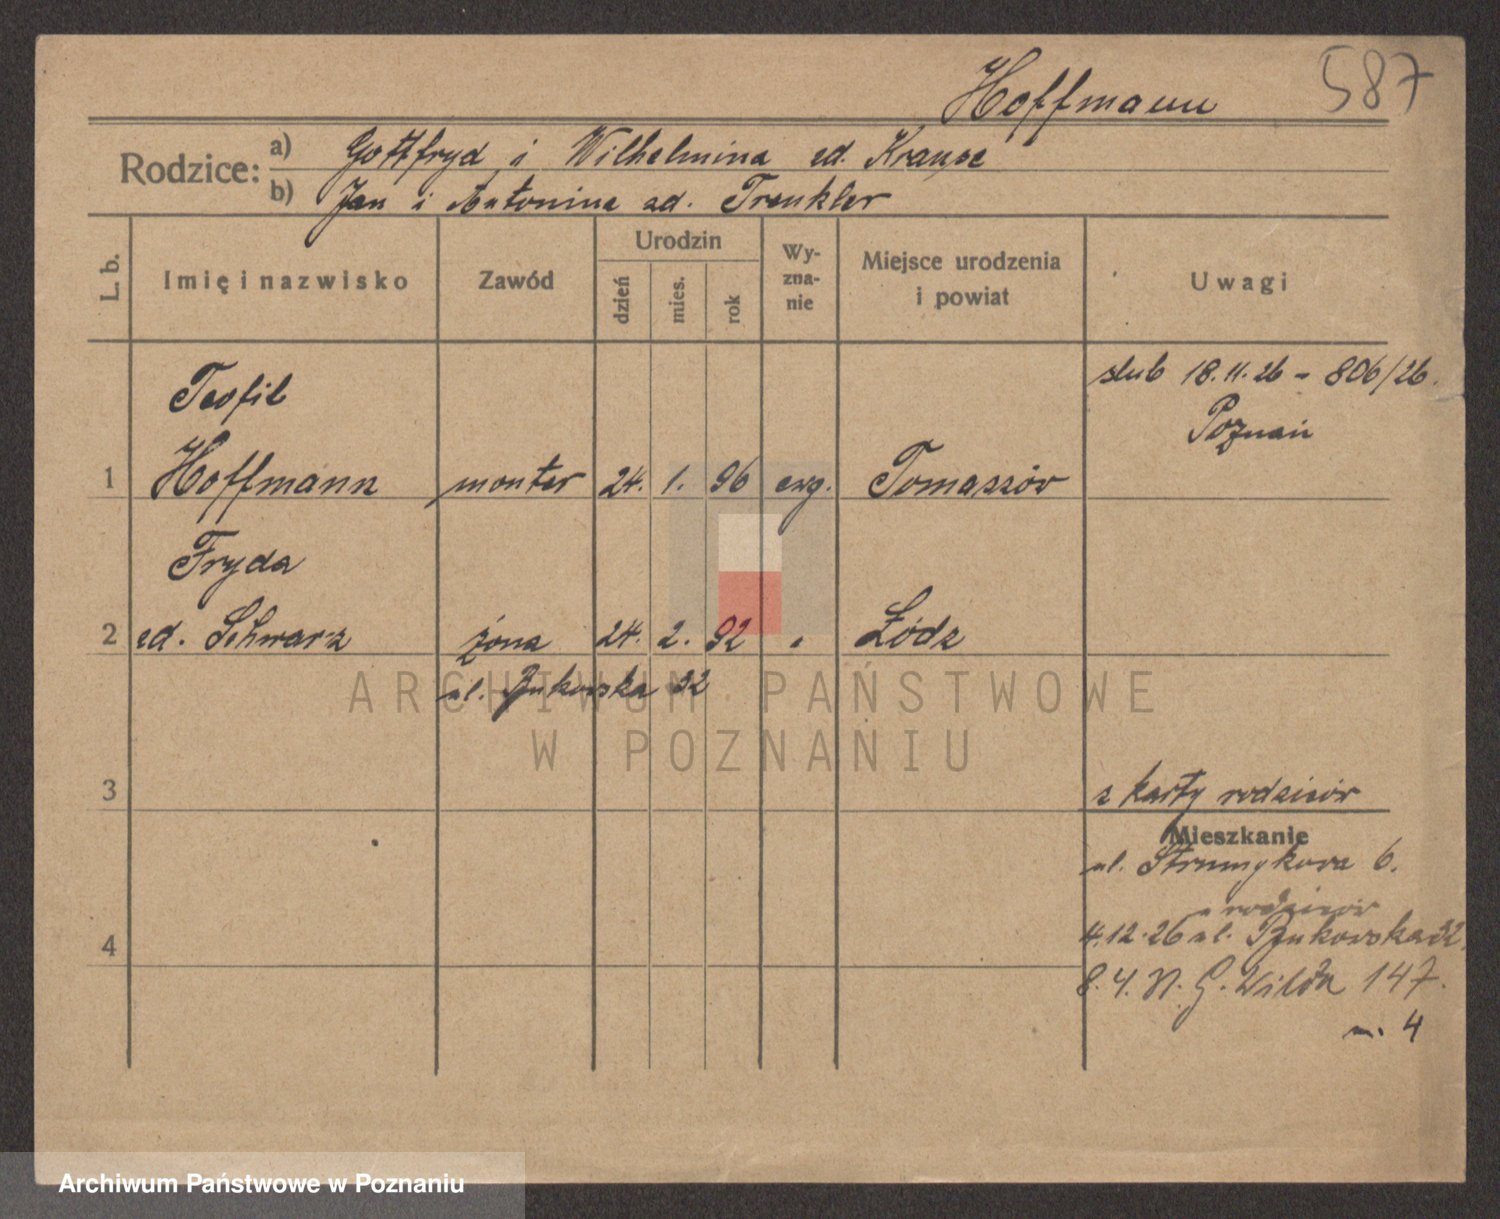 Hoffmann 587
Rodzice: a) Gottfryd i Wilhelmina zd. Krause
b) Jan i Antonina zd. Trenkler
L. b. Imię i nazwisko Zawód Urodzin dzień mies. rok Wy-zna-nie Miejsce urodzenia i powiat Uwagi
ślub 18.11.26 - 806/26.
Poznań
Teofil
1 Hoffmann monter 24. 1. 96 ewg. Tomaszów
Fryda
2 zd. Schwarz żona 24. 2. 92 " Łódz
ul. Bukowska 32
ARCHIWUM PAŃSTWOWE
W POZNANIU
3 z karty rodziców
Mieszkanie
ul. Strumykowa 6.
u rodziców
4.12.26 ul. Bukowska 32
4
8.4. G. Wilda 147.
m. 4
Archiwum Państwowe w Poznaniu